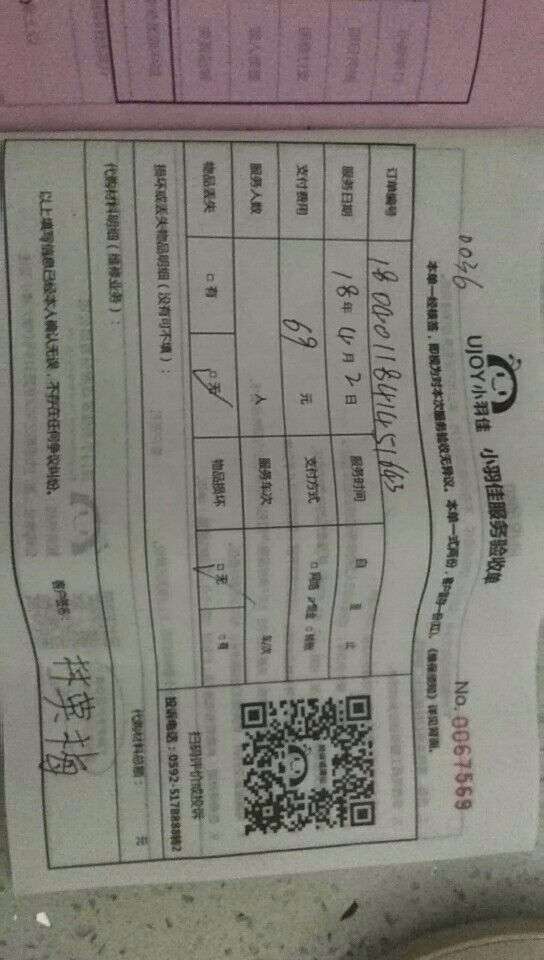 0036
UJOY小羽佳 小羽佳服务验收单 No.0067569
本单一经接签，即视为对本次服务验收无异议。本单一式两份，客户留存一份(红)。《维保须知》详见背面。
订单编号
服务日期 18年4月2日 服务时间 自 至 止
支付费用 69 元 支付方式 □网络 ☑现金 □转账
服务人数 人 服务车次 车/次
物品丢失 □有 ☑无 物品损坏 ☑无 □有
扫码评价或投诉
投诉电话：0592-5178888转2
损坏或丢失物品明细（没有可不填）：
代购材料明细（维修业务）： 代购材料总额： 元
以上填写信息已经本人确认无误，不存在任何争议纠纷。 客户签名： 林黄梅